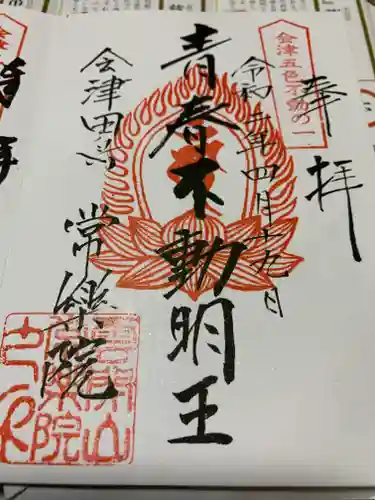 会津五色不動の一
奉拝
令和五年四月十九日
青春不動明王
会津田島
常楽院